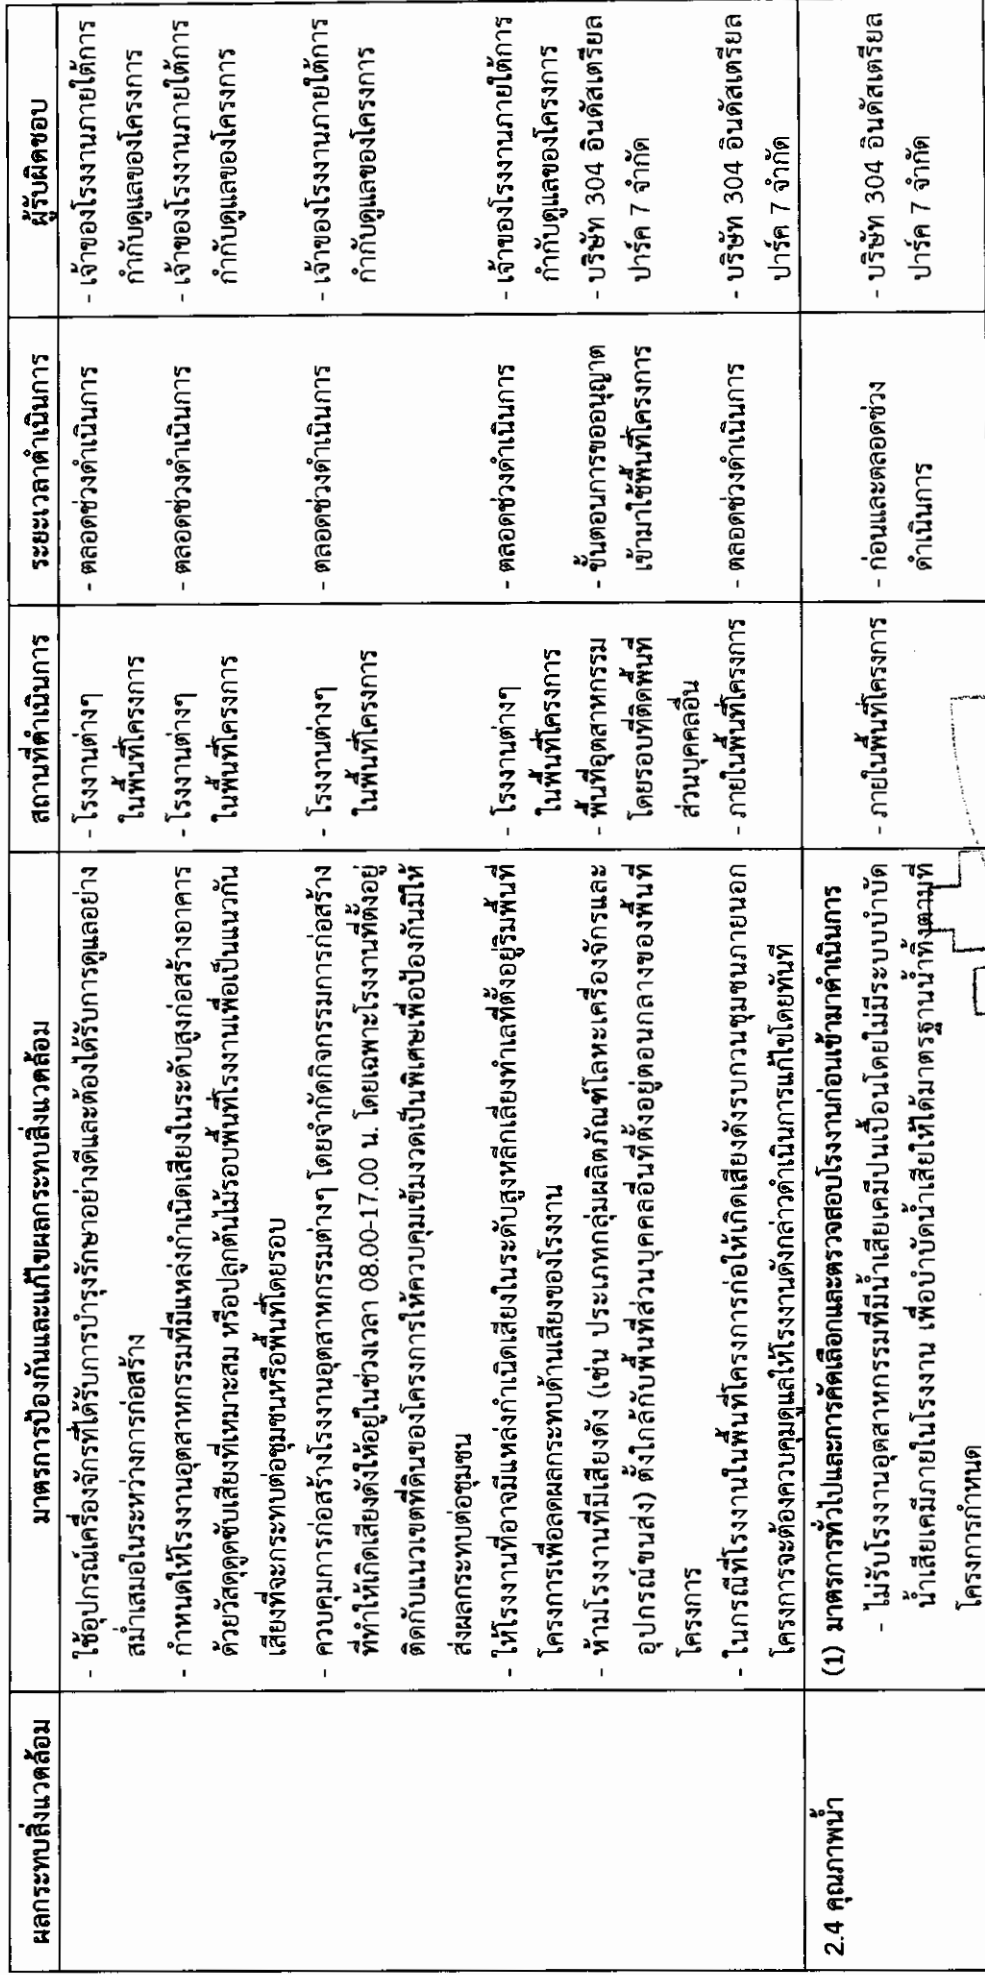 ผลกระทบสิ่งแวดล้อม
มาตรการป้องกันและแก้ไขผลกระทบสิ่งแวดล้อม
สถานที่ดำเนินการ
ระยะเวลาดำเนินการ
ผู้รับผิดชอบ
- ใช้อุปกรณ์เครื่องจักรที่ได้รับการบำรุงรักษาอย่างดีและต้องได้รับการดูแลอย่าง
สม่ำเสมอในระหว่างการก่อสร้าง
- โรงงานต่างๆ
ในพื้นที่โครงการ
- ตลอดช่วงดำเนินการ
- เจ้าของโรงงานภายใต้การ
กำกับดูแลของโครงการ
- กำหนดให้โรงงานอุตสาหกรรมที่มีแหล่งกำเนิดเสียงในระดับสูงก่อสร้างอาคาร
ด้วยวัสดุดูดซับเสียงที่เหมาะสม หรือปลูกต้นไม้รอบพื้นที่โรงงานเพื่อเป็นแนวกัน
เสียงที่จะกระทบต่อชุมชนหรือพื้นที่โดยรอบ
- โรงงานต่างๆ
ในพื้นที่โครงการ
- ตลอดช่วงดำเนินการ
- เจ้าของโรงงานภายใต้การ
กำกับดูแลของโครงการ
- ควบคุมการก่อสร้างโรงงานอุตสาหกรรมต่างๆ โดยจำกัดกิจกรรมการก่อสร้าง
ที่ทำให้เกิดเสียงดังให้อยู่ในช่วงเวลา 08.00-17.00 น. โดยเฉพาะโรงงานที่ตั้งอยู่
ติดกับแนวเขตที่ดินของโครงการให้ควบคุมเข้มงวดเป็นพิเศษเพื่อป้องกันมิให้
ส่งผลกระทบต่อชุมชน
- โรงงานต่างๆ
ในพื้นที่โครงการ
- ตลอดช่วงดำเนินการ
- เจ้าของโรงงานภายใต้การ
กำกับดูแลของโครงการ
- ให้โรงงานที่อาจมีแหล่งกำเนิดเสียงในระดับสูงหลีกเลี่ยงทำเลที่ตั้งอยู่ริมพื้นที่
โครงการเพื่อลดผลกระทบด้านเสียงของโรงงาน
- โรงงานต่างๆ
ในพื้นที่โครงการ
- ตลอดช่วงดำเนินการ
- เจ้าของโรงงานภายใต้การ
กำกับดูแลของโครงการ
- ห้ามโรงงานที่มีเสียงดัง (เช่น ประเภทกลุ่มผลิตภัณฑ์โลหะเครื่องจักรและ
อุปกรณ์ขนส่ง) ตั้งใกล้กับพื้นที่ส่วนบุคคลอื่นที่ตั้งอยู่ตอนกลางของพื้นที่
โครงการ
- พื้นที่อุตสาหกรรม
โดยรอบที่ติดพื้นที่
ส่วนบุคคลอื่น
- ขั้นตอนการขออนุญาต
เข้ามาใช้พื้นที่โครงการ
- บริษัท 304 อินดัสเตรียล
ปาร์ค 7 จำกัด
- ในกรณีที่โรงงานในพื้นที่โครงการก่อให้เกิดเสียงดังรบกวนชุมชนภายนอก
โครงการจะต้องควบคุมดูแลให้โรงงานดังกล่าวดำเนินการแก้ไขโดยทันที
- ภายในพื้นที่โครงการ
- ตลอดช่วงดำเนินการ
- บริษัท 304 อินดัสเตรียล
ปาร์ค 7 จำกัด
2.4 คุณภาพน้ำ
(1) มาตรการทั่วไปและการคัดเลือกและตรวจสอบโรงงานก่อนเข้ามาดำเนินการ
- ไม่รับโรงงานอุตสาหกรรมที่มีน้ำเสียเคมีปนเปื้อนโดยไม่มีระบบบำบัด
น้ำเสียเคมีภายในโรงงาน เพื่อบำบัดน้ำเสียให้ได้มาตรฐานน้ำทิ้งตามที่
โครงการกำหนด
- ภายในพื้นที่โครงการ
- ก่อนและตลอดช่วง
ดำเนินการ
- บริษัท 304 อินดัสเตรียล
ปาร์ค 7 จำกัด